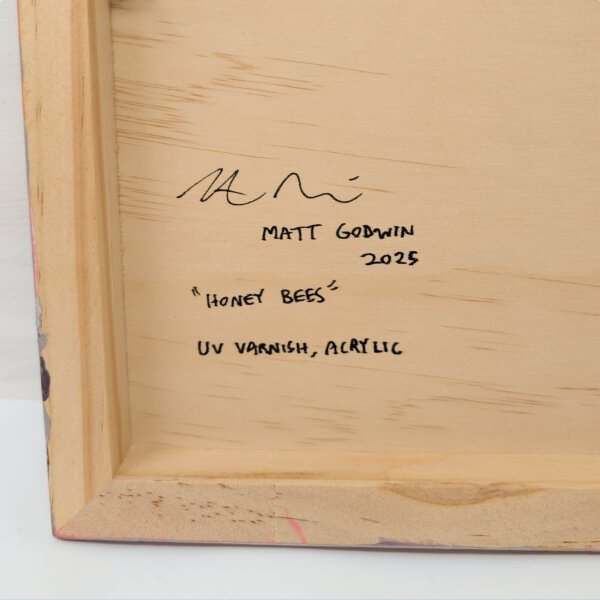 MATT GODWIN
2025
"HONEY BEES"
UV VARNISH, ACRYLIC